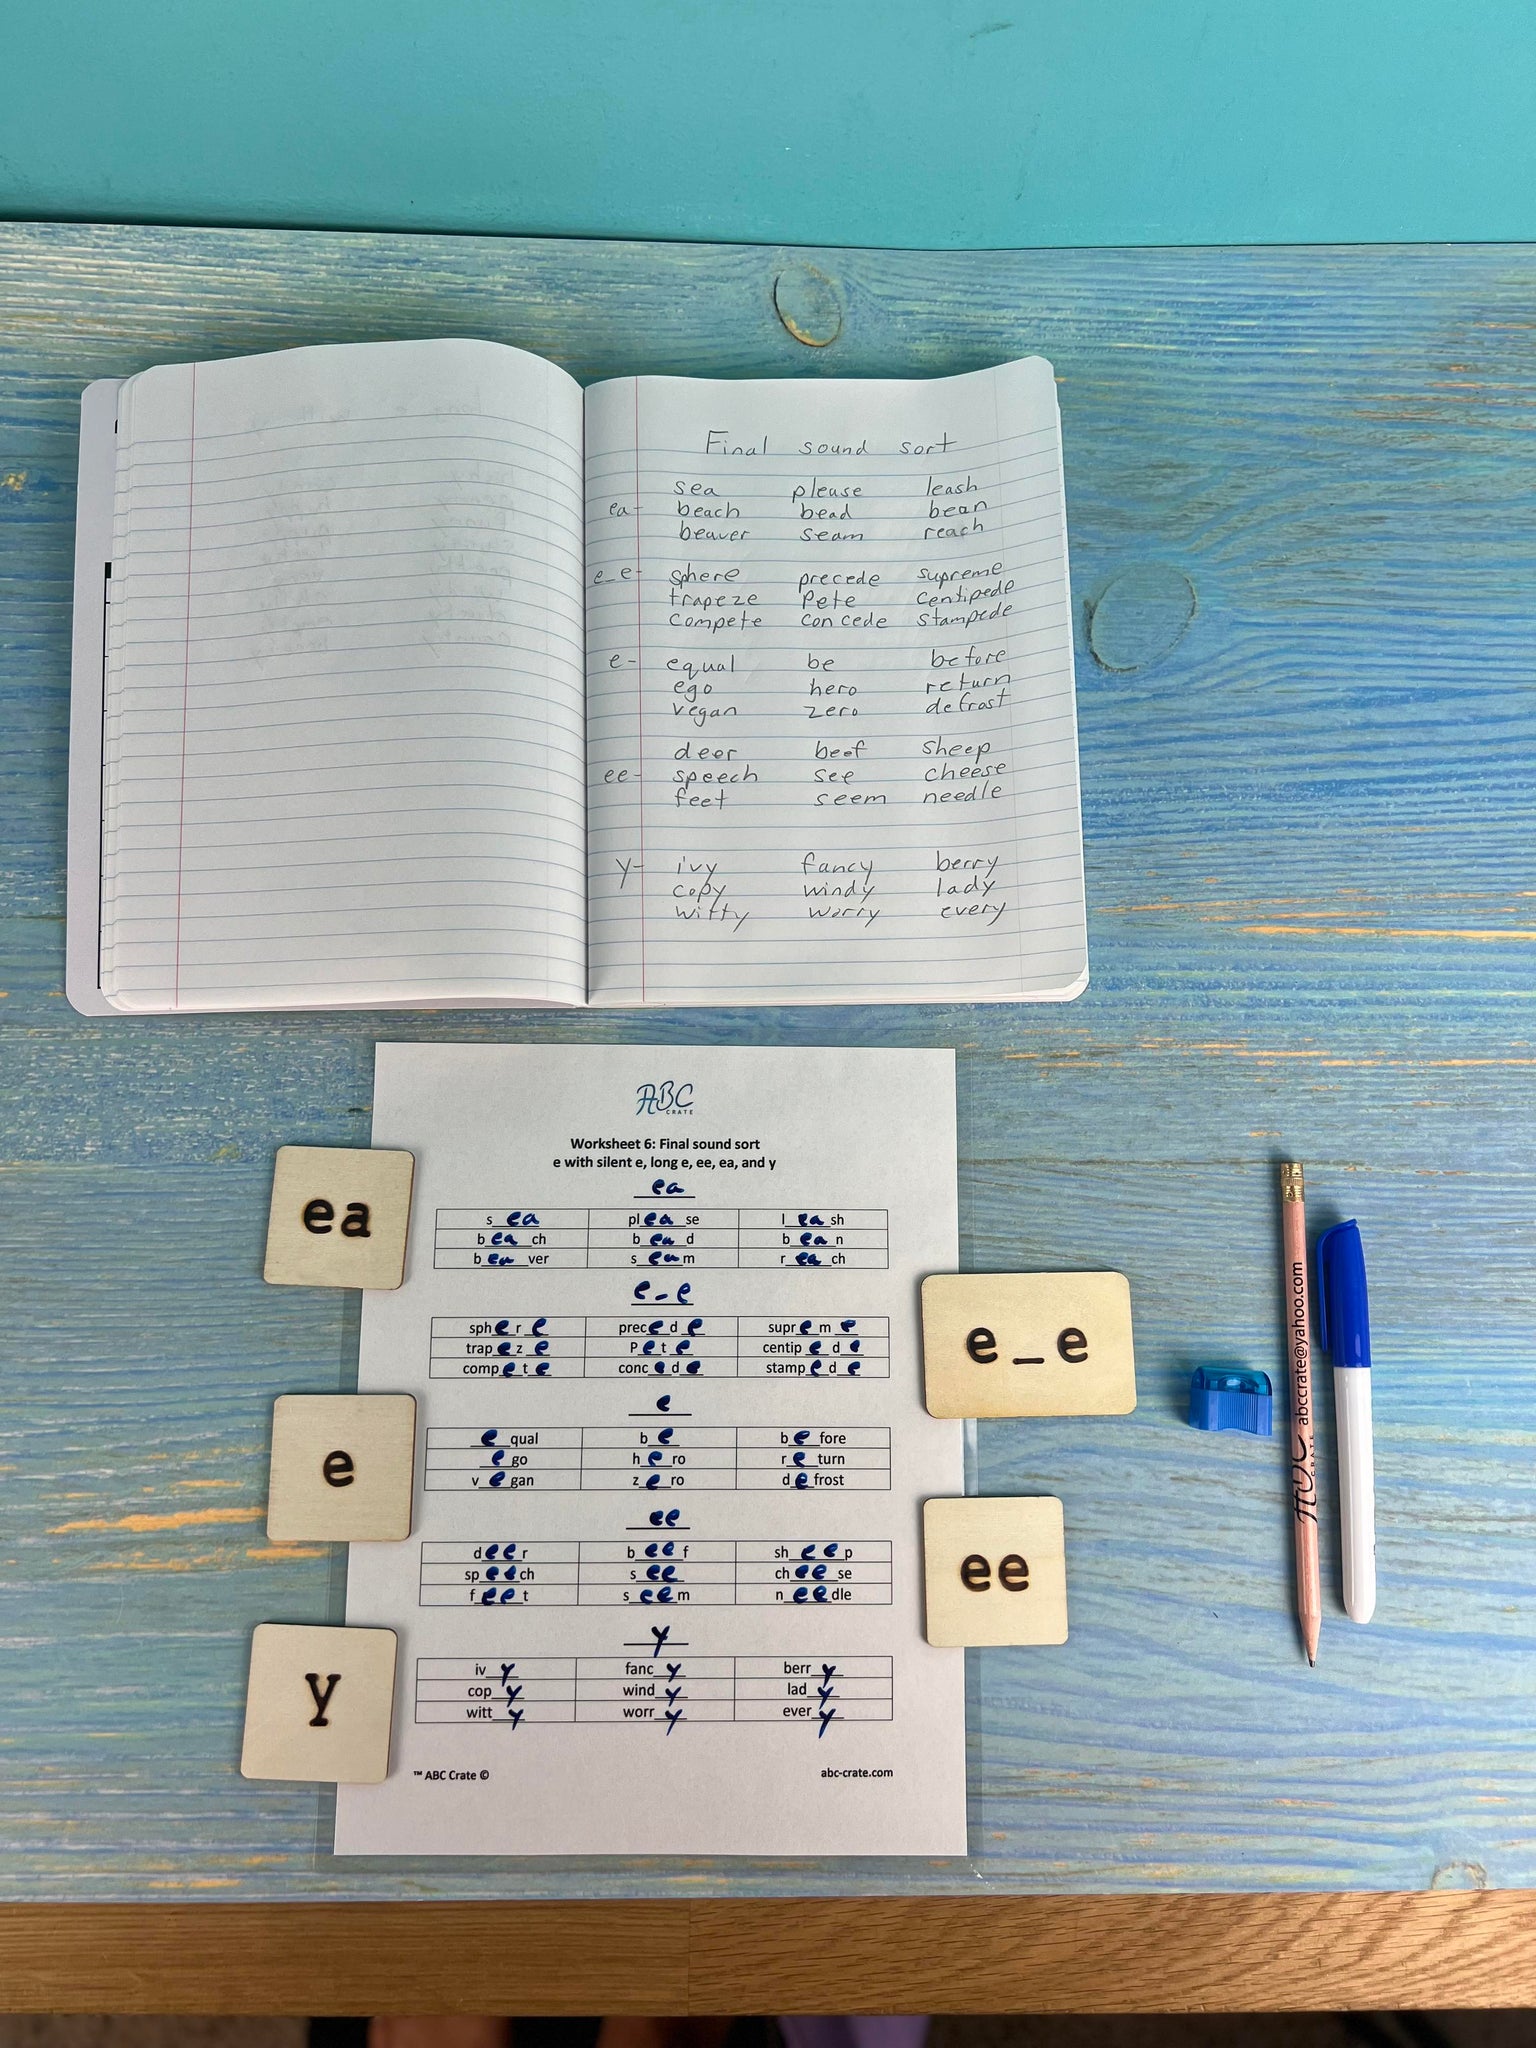 Final sound sort
sea please leash
ea- beach bead bean
beaver seam reach
e_e- sphere precede supreme
trapeze Pete centipede
compete concede stampede
e- equal be before
ego hero return
vegan zero defrost
deer beef sheep
ee- speech see cheese
feet seem needle
y- ivy fancy berry
copy windy lady
witty worry every
ABC
CRATE
Worksheet 6: Final sound sort
e with silent e, long e, ee, ea, and y
ea
s ea pl ea se l ea sh
b ea ch b ea d b ea n
b ea ver s ea m r ea ch
e_e
sph e r e prec e d e supr e m e
trap e z e P e t e centip e d e
comp e t e conc e d e stamp e d e
e
e qual b e b e fore
e go h e ro r e turn
v e gan z e ro d e frost
ee
d ee r b ee f sh ee p
sp ee ch s ee ch ee se
f ee t s ee m n ee dle
y
iv y fanc y berr y
cop y wind y lad y
witt y worr y ever y
™ ABC Crate © abc-crate.com
ea
e
y
e_e
ee
ABC CRATE abccrate@yahoo.com